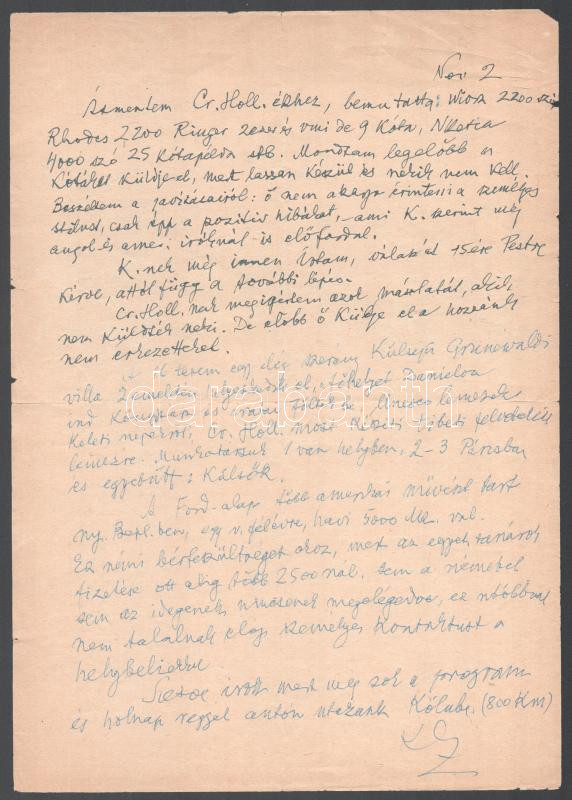 Nov 2
Átmentem Cr. Holl. ékhez, bemutatta: Wiora 2200
Rhodes 2200 Ringer zenei és vmi de 9 Kóta,
4000 szó 25 Kótapélda stb. Mondtam legelőbb a
Kótákat küldje el, mert lassan készül és nékik nem kell.
Beszéltem a javításairól: ő nem akarja érinteni a személyes
stílust, csak épp a pozitiv hibákat, ami K. szerint még
angol és amer. iróknál is előfordul.
K. nek még innen írtam, választ 15ére Pestre
kérve, attól függ a további lépés.
Cr. Holl. nak megigértem azok másolatát, akik
nem küldték neki. De előbb ő küldje el a hozzánk
nem érkezetteket.
terem egy elég szerény külsejű Grunewaldi
villa 2 emeletén helyezkedik el, főhelyet Danielou
ind Könyvtára és irásai töltik be, Unesco lemezek
Keleti népekről, Cr. Holl. most készíti tibeti felvételeit
lemezre. Munkatársuk 1 van helyben, 2-3 Párisban
és egyebütt: Külsők.
A Ford-alap több amerikai művészt tart
ny. Berl. ben, egy v. félévre, havi 5000 Mk. val.
Ez némi bérfeszültséget okoz, mert az egyet. tanárok
fizetése ott alig több 2500 nál. Sem a németek
sem az idegenek nincsenek megelégedve, ez utóbbiak
nem találnak elég személyes kontaktust a
helybeliekkel
írok mert még sok a program
és holnap reggel autón utazunk Kölnbe. (800 Km)